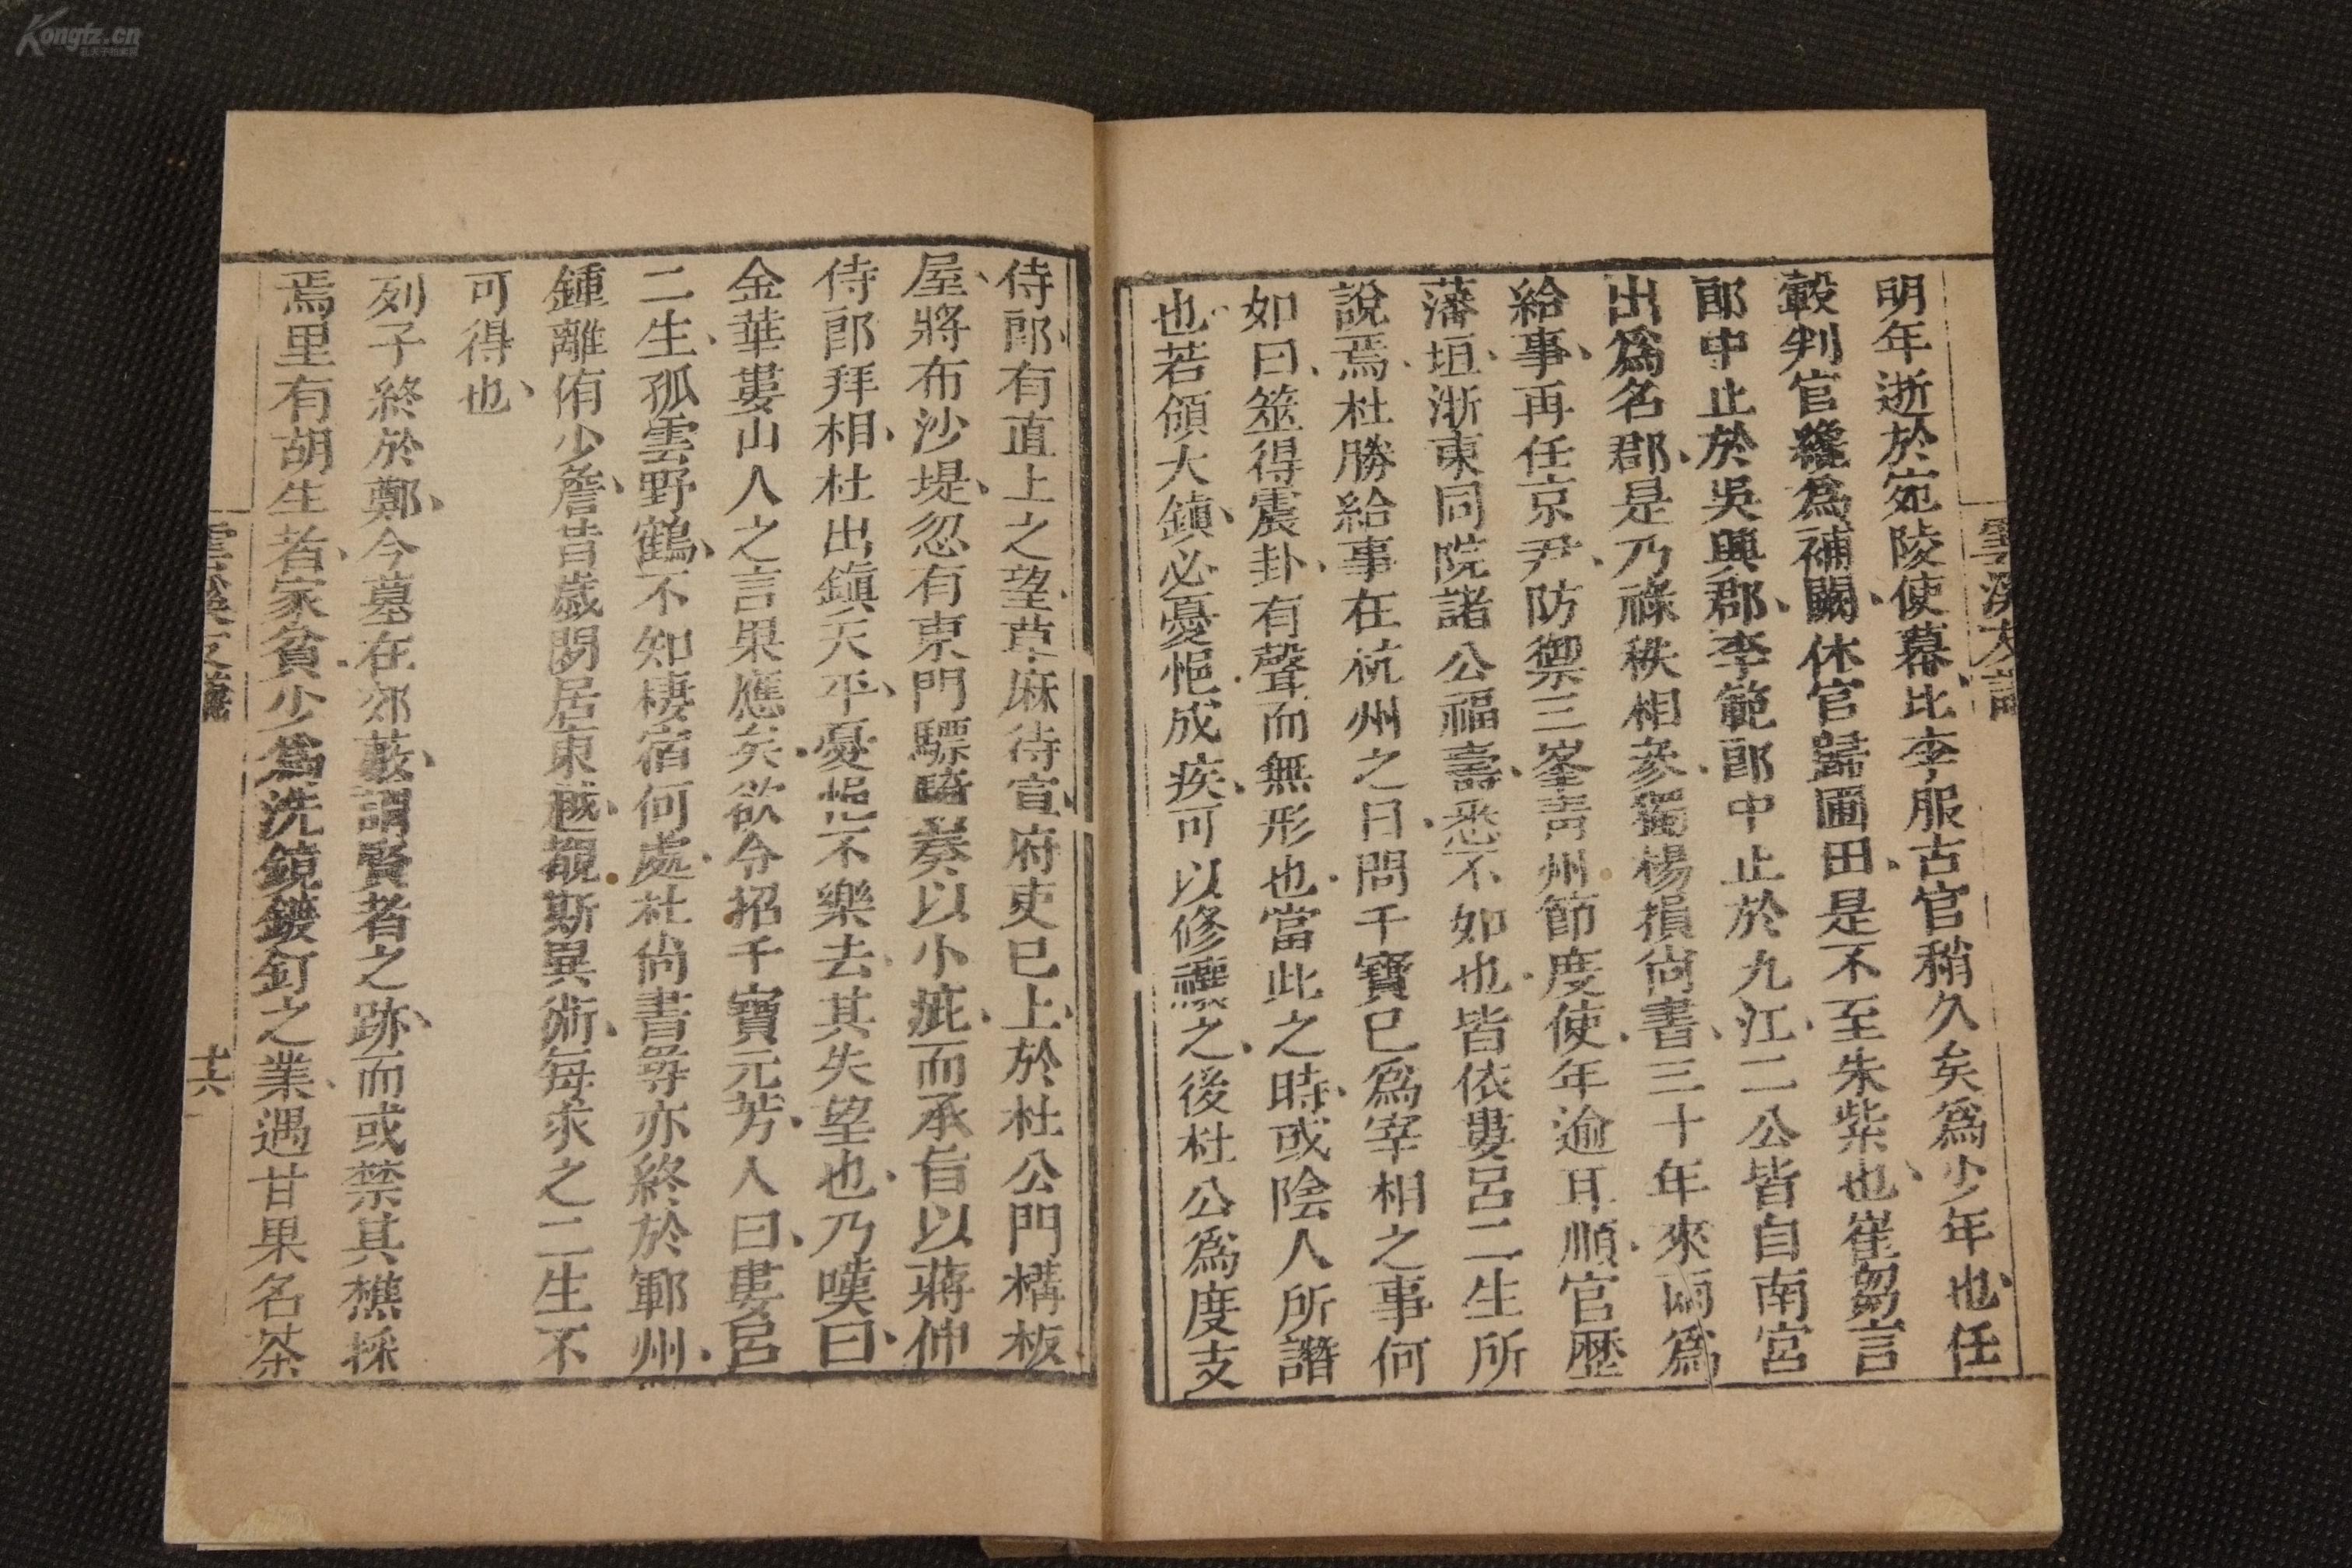 Kongfz.cn
雲溪友議
明年逝於宛陵使幕比李服古官稍久矣爲少年也任
轂判官纔爲補闕休官歸圃田是不至朱紫也崔芻言
郎中止於吳興郡李範郎中止於九江二公皆自南宮
出爲名郡是乃祿秩相參獨楊損尚書三十年來兩爲
給事再任京尹防禦三峯青州節度使年逾耳順官歷
藩垣浙東同院諸公福壽悉不如也皆依婁呂二生所
說焉杜勝給事在杭州之日問千寶已爲宰相之事何
如曰筮得震卦有聲而無形也當此之時或陰人所譖
也若領大鎮必憂悒成疾可以修禳之後杜公爲度支
侍郎有直上之望草麻待宣府吏已上於杜公門構板
屋將布沙堤忽有東門驃騎奏以小疵而承旨以蔣伸
侍郎拜相杜出鎮天平憂悒不樂去其失望也乃嘆曰
金華婁山人之言果應矣欲令招千寶元芳人曰婁呂
二生孤雲野鶴不知棲宿何處杜尚書尋亦終於鄆州
鍾離侑少詹昔歲閒居東越覩斯異術每求之二生不
可得也
列子終於鄭今墓在郊藪謂賢者之跡而或禁其樵採
焉里有胡生者家貧少爲洗鏡鎪釘之業遇甘果名茶
雲溪友議
十六